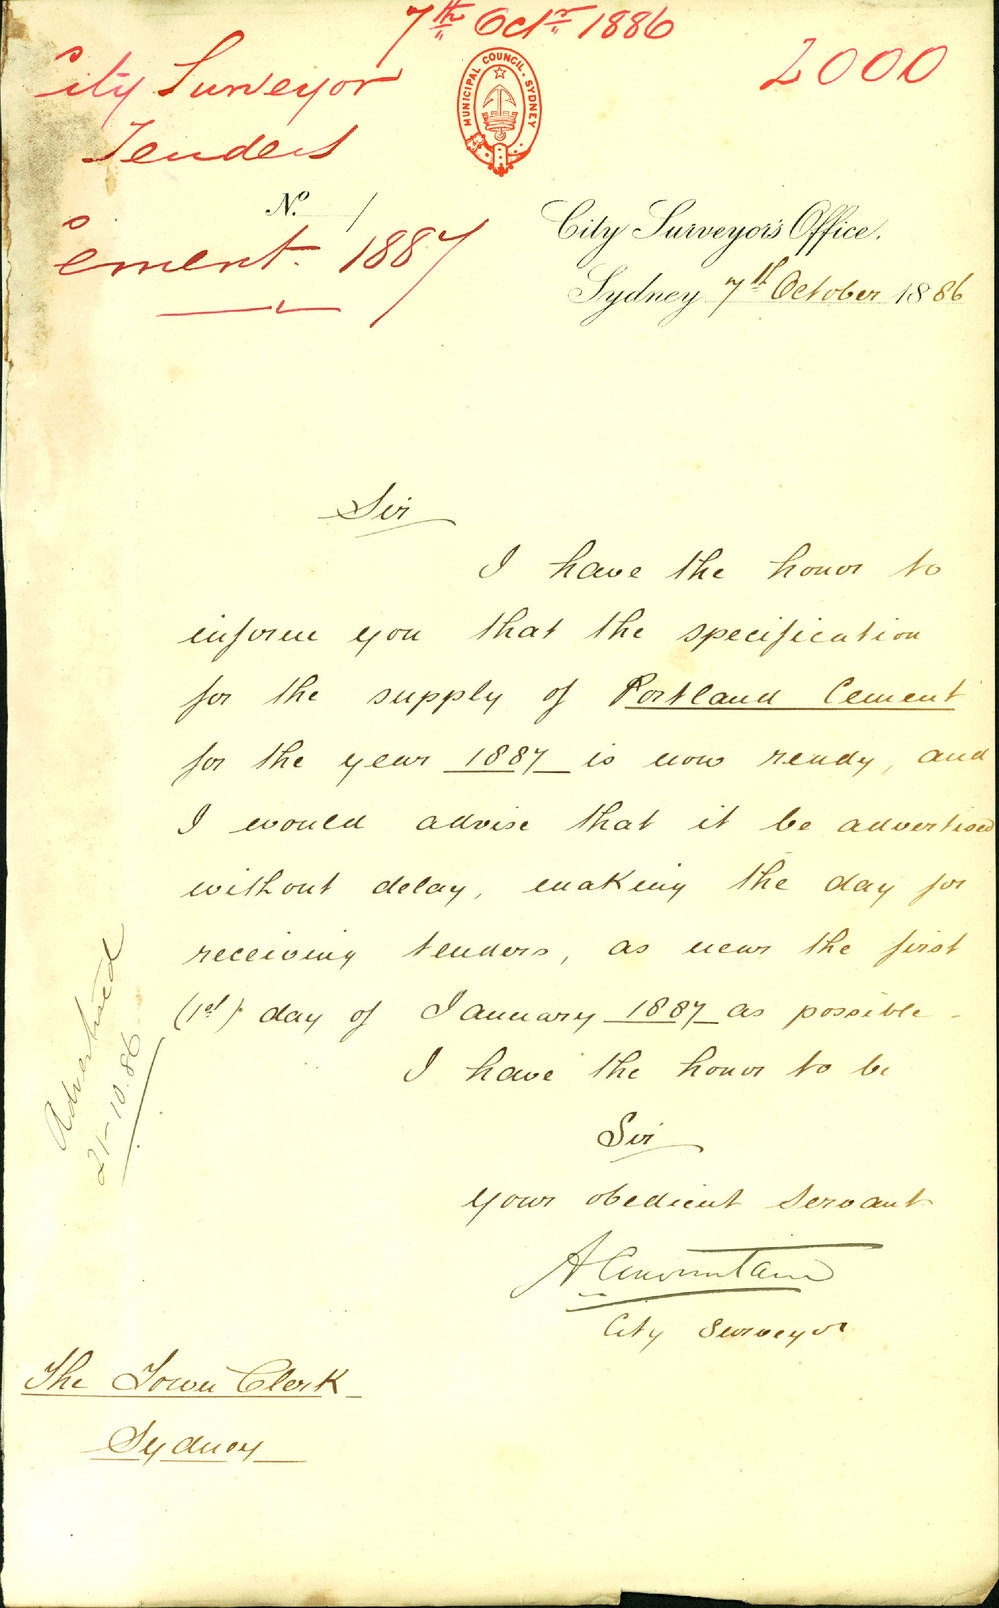 7th Octr 1886
City Surveyor
2000
Tenders
MUNICIPAL COUNCIL. SYDNEY
No. /
Cement. 1887
City Surveyor's Office.
Sydney 7th October 1886
Sir
I have the honor to
inform you that the specification
for the supply of Portland Cement
for the year 1887 is now ready, and
I would advise that it be advertised
without delay, making the day for
receiving tenders, as near the first
(1st) day of January 1887 as possible -
I have the honor to be
Sir
Your obedient Servant
City Surveyor
The Town Clerk
Sydney
Advertised
21-10.86